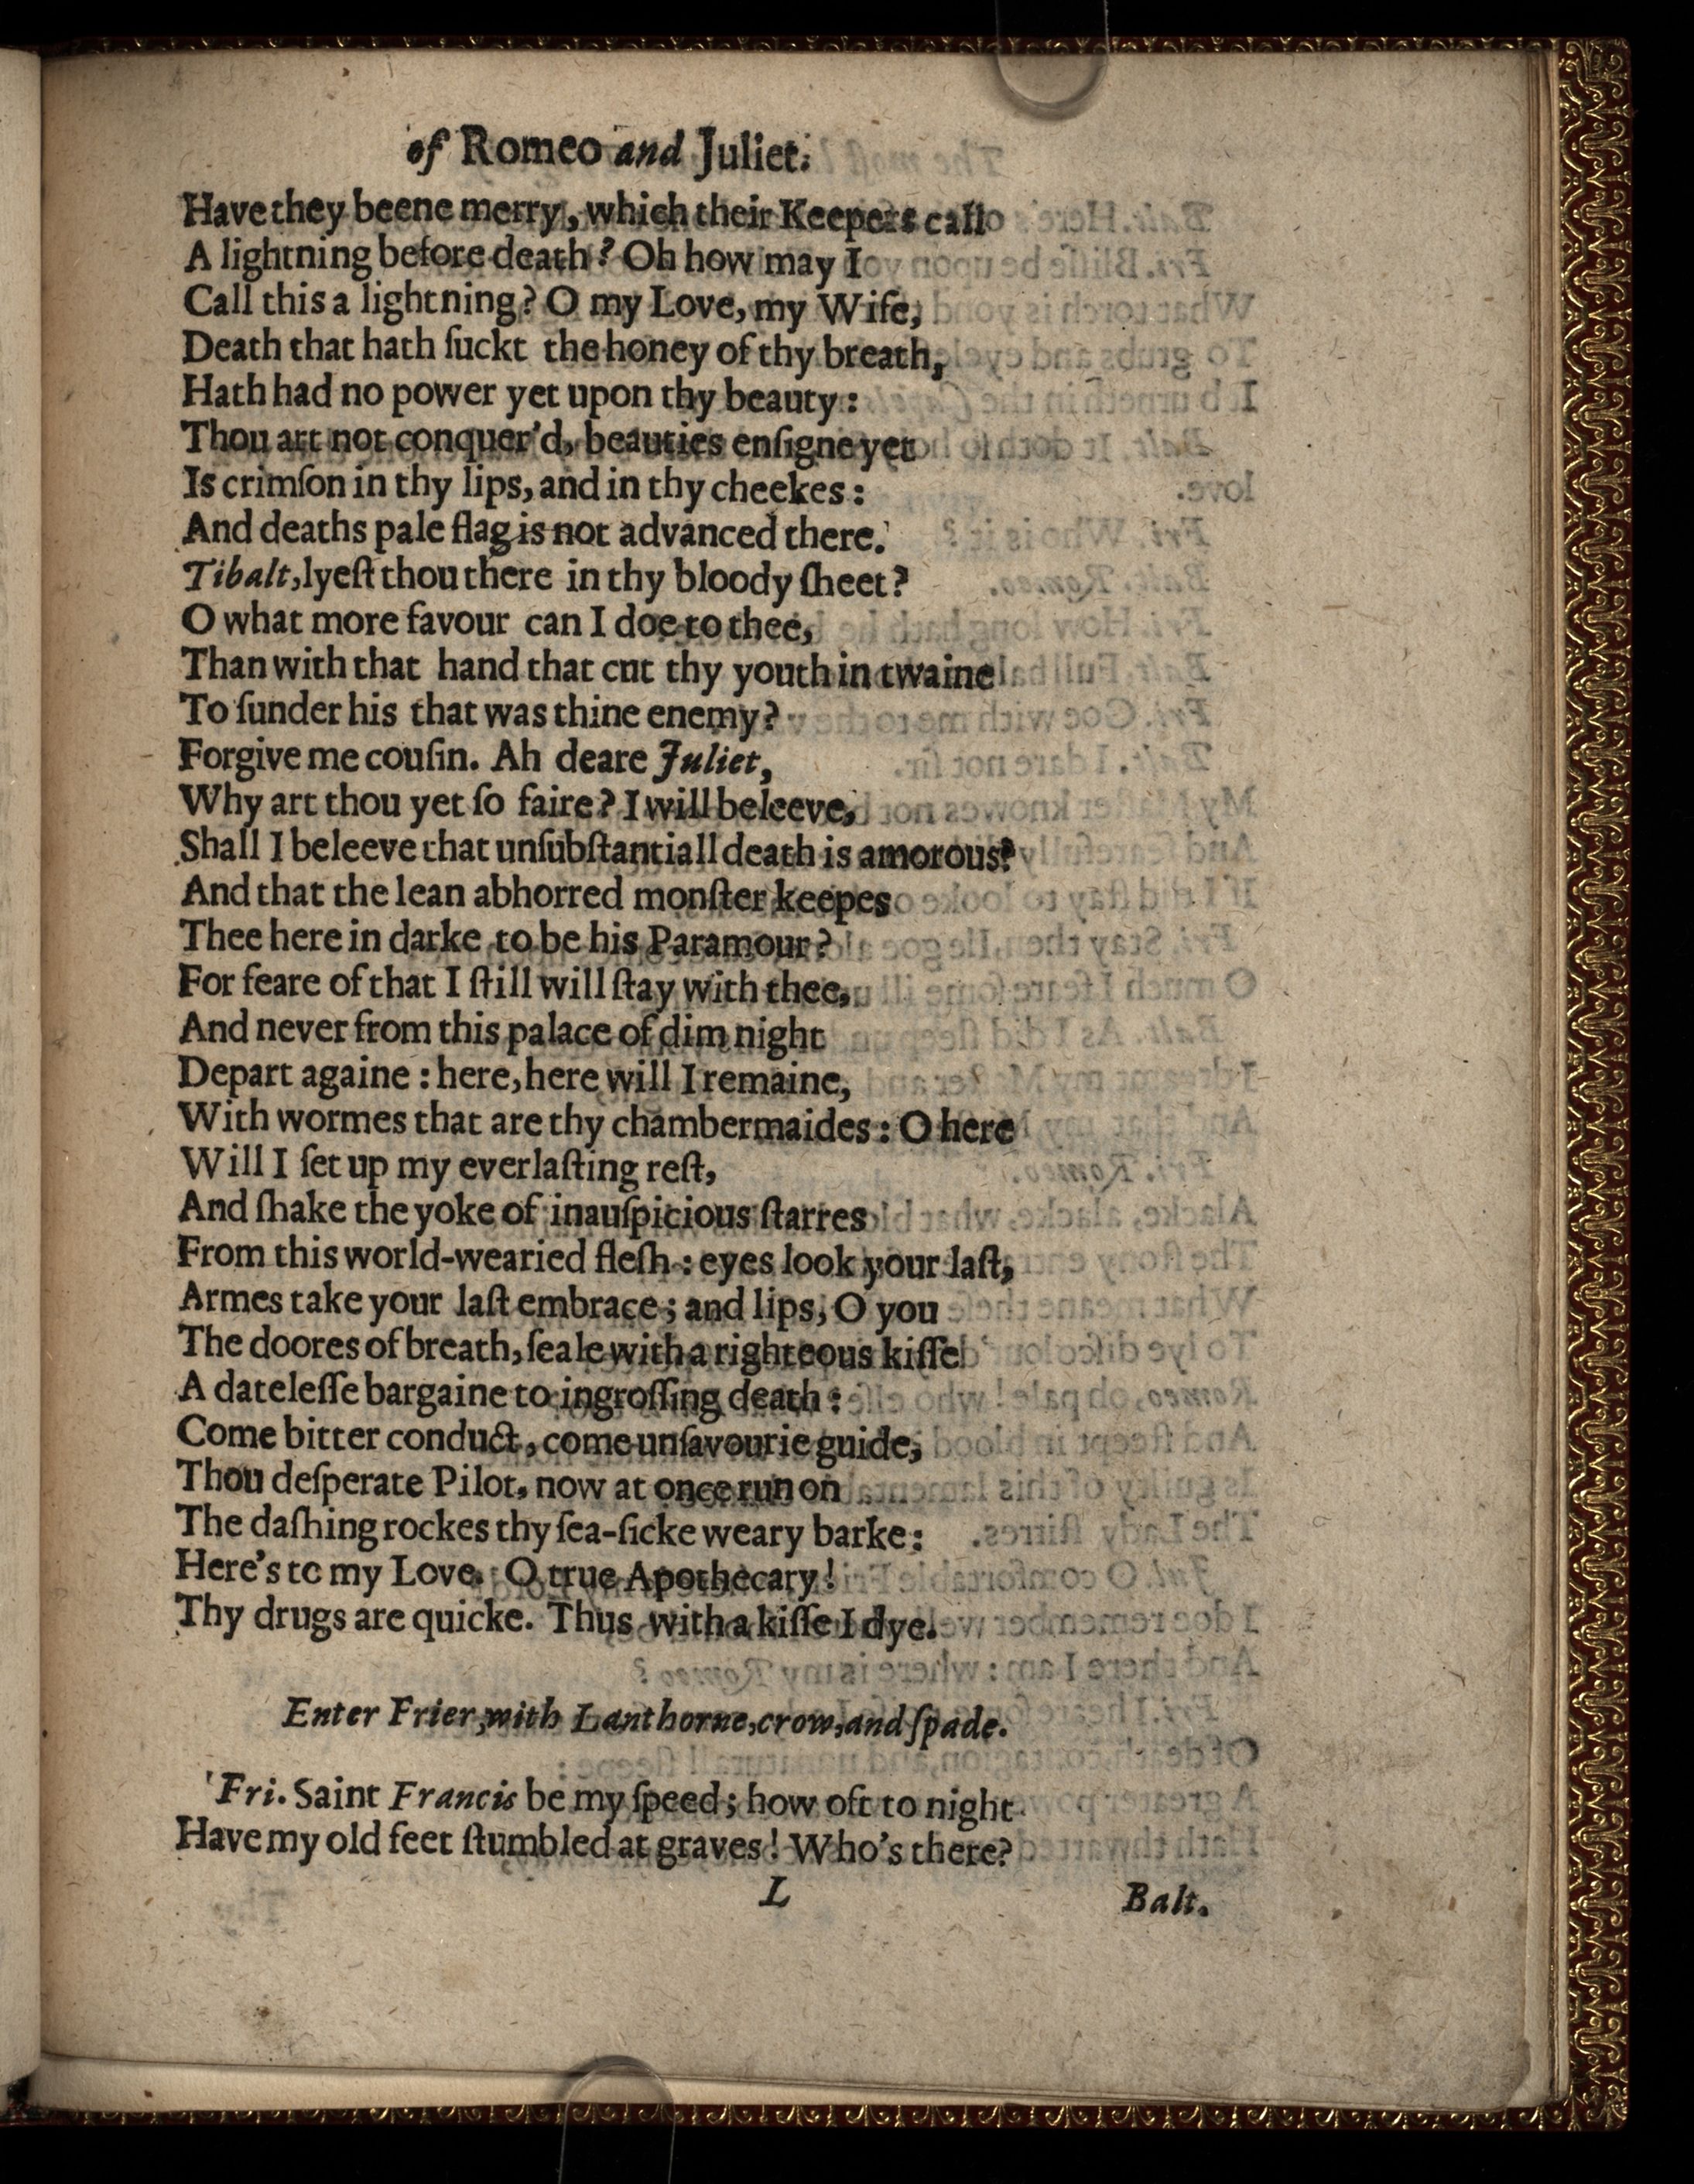 of Romeo and Juliet.
Have they beene merry, which their Keepers call
A lightning before death? Oh how may I
Call this a lightning? O my Love, my Wife,
Death that hath ſuckt the honey of thy breath,
Hath had no power yet upon thy beauty:
Thou art not conquer'd, beauties enſigne yet
Is crimſon in thy lips, and in thy cheekes:
And deaths pale flag is not advanced there.
Tibalt, lyeſt thou there in thy bloody ſheet?
O what more favour can I doe to thee,
Than with that hand that cut thy youth in twaine
To ſunder his that was thine enemy?
Forgive me couſin. Ah deare Juliet,
Why art thou yet ſo faire? I will beleeve,
Shall I beleeve that unſubſtantiall death is amorous?
And that the lean abhorred monſter keepes
Thee here in darke to be his Paramour?
For feare of that I ſtill will ſtay with thee,
And never from this palace of dim night
Depart againe: here, here will I remaine,
With wormes that are thy chambermaides: O here
Will I ſet up my everlaſting reſt,
And ſhake the yoke of inauſpicious ſtarres
From this world-wearied fleſh: eyes look your laſt,
Armes take your laſt embrace; and lips, O you
The doores of breath, ſeale with a righteous kiſſe
A dateleſſe bargaine to ingroſſing death:
Come bitter conduct, come unſavourie guide,
Thou deſperate Pilot, now at once run on
The daſhing rockes thy ſea-ſicke weary barke:
Here's to my Love. O true Apothecary!
Thy drugs are quicke. Thus with a kiſſe I dye.
Enter Frier, with Lanthorne, crow, and ſpade.
Fri. Saint Francis be my ſpeed; how oft to night
Have my old feet ſtumbled at graves! Who's there?
L
Balt.